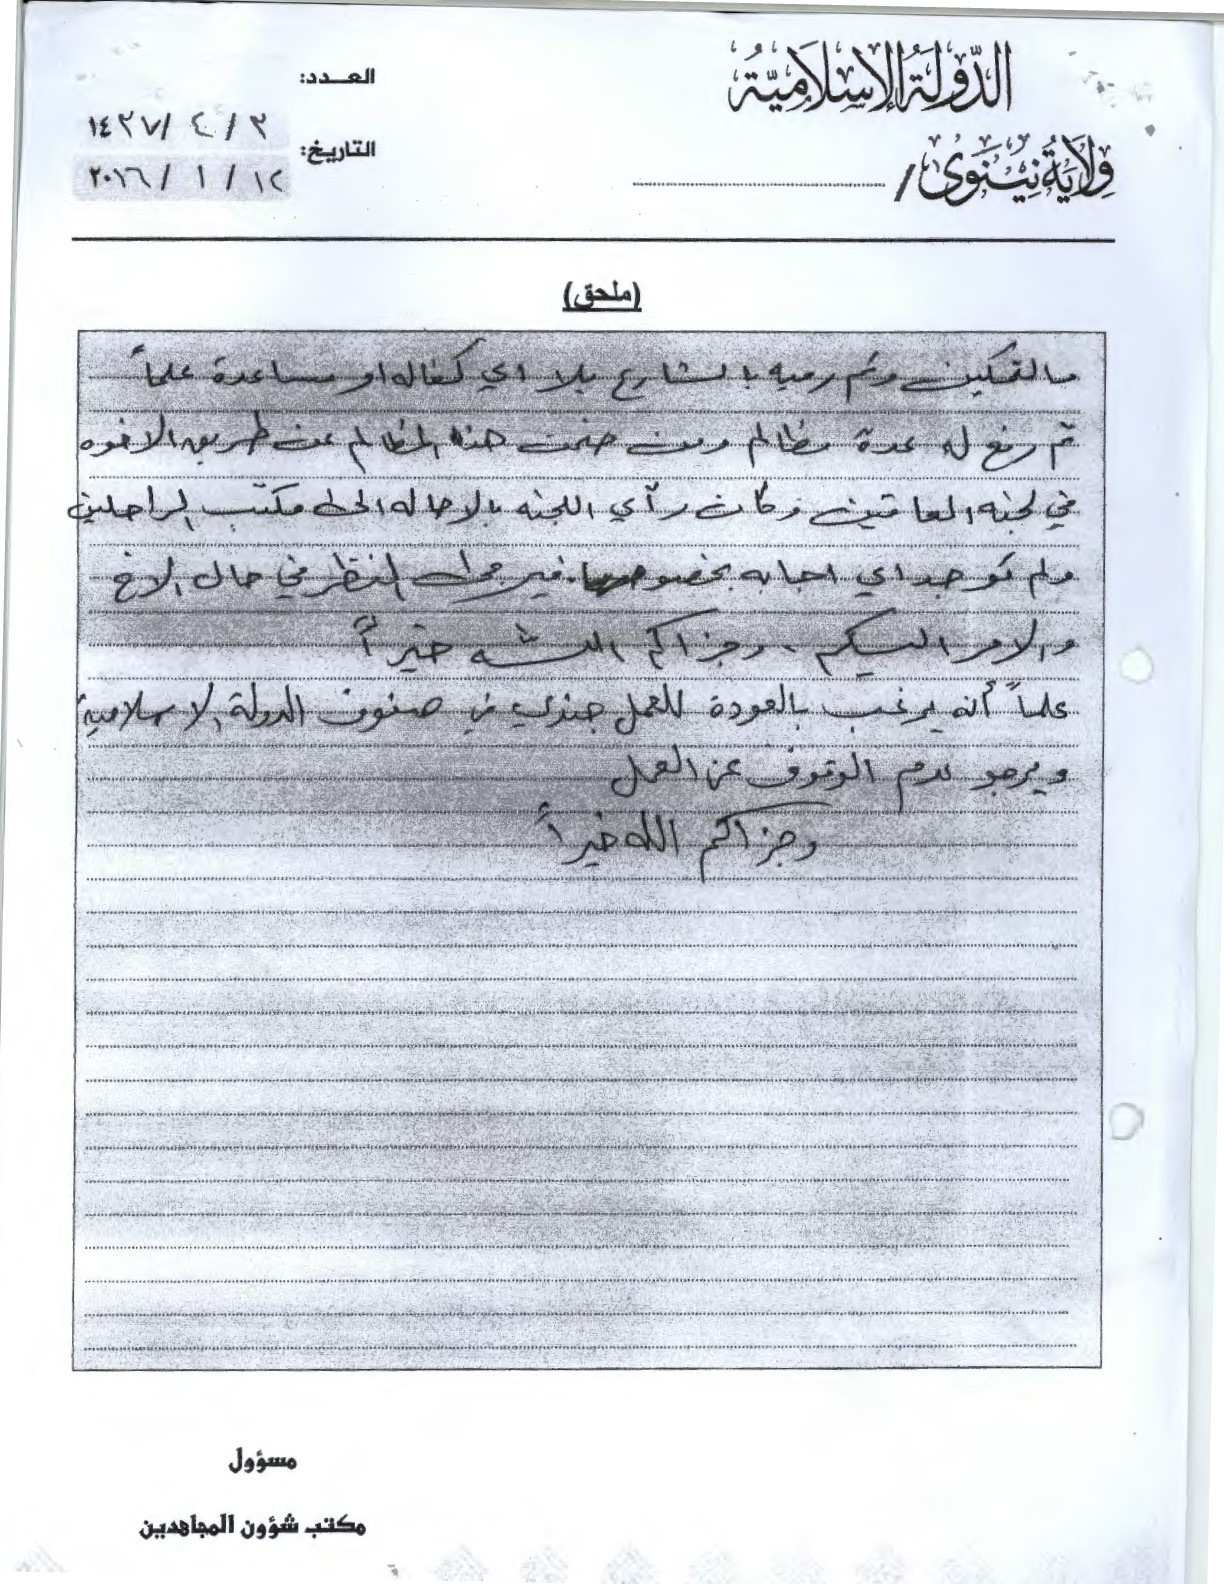 الدَّوْلَةُ الإِسْلَامِيَّةُ
وِلَايَةُ نِينَوَى /
العـــدد:
٢ / ٤ / ١٤٣٧
التاريخ:
١٢ / ١ / ٢٠١٦
(ملحق)
وتم رميه بالشارع بلا اي كفاله او مساعدة علماً
تم رفع له عدة مظالم ومن ضمن هذه المظالم عن طريق الاخوه
في لجنه المعاقين وكان رأي اللجنه بالاحاله الى مكتب الراحلين
ولم توجد اي اجابه بخصوصها فيرجى النظر في حال الاخ
والامر اليكم . وجزاكم الله خيراً
علماً أنه يرغب بالعودة للعمل جندي في صفوف الدولة الاسلامية
ويرجو عدم الوقوف عن العمل
وجزاكم الله خيراً
مسؤول
مكتب شؤون المجاهدين